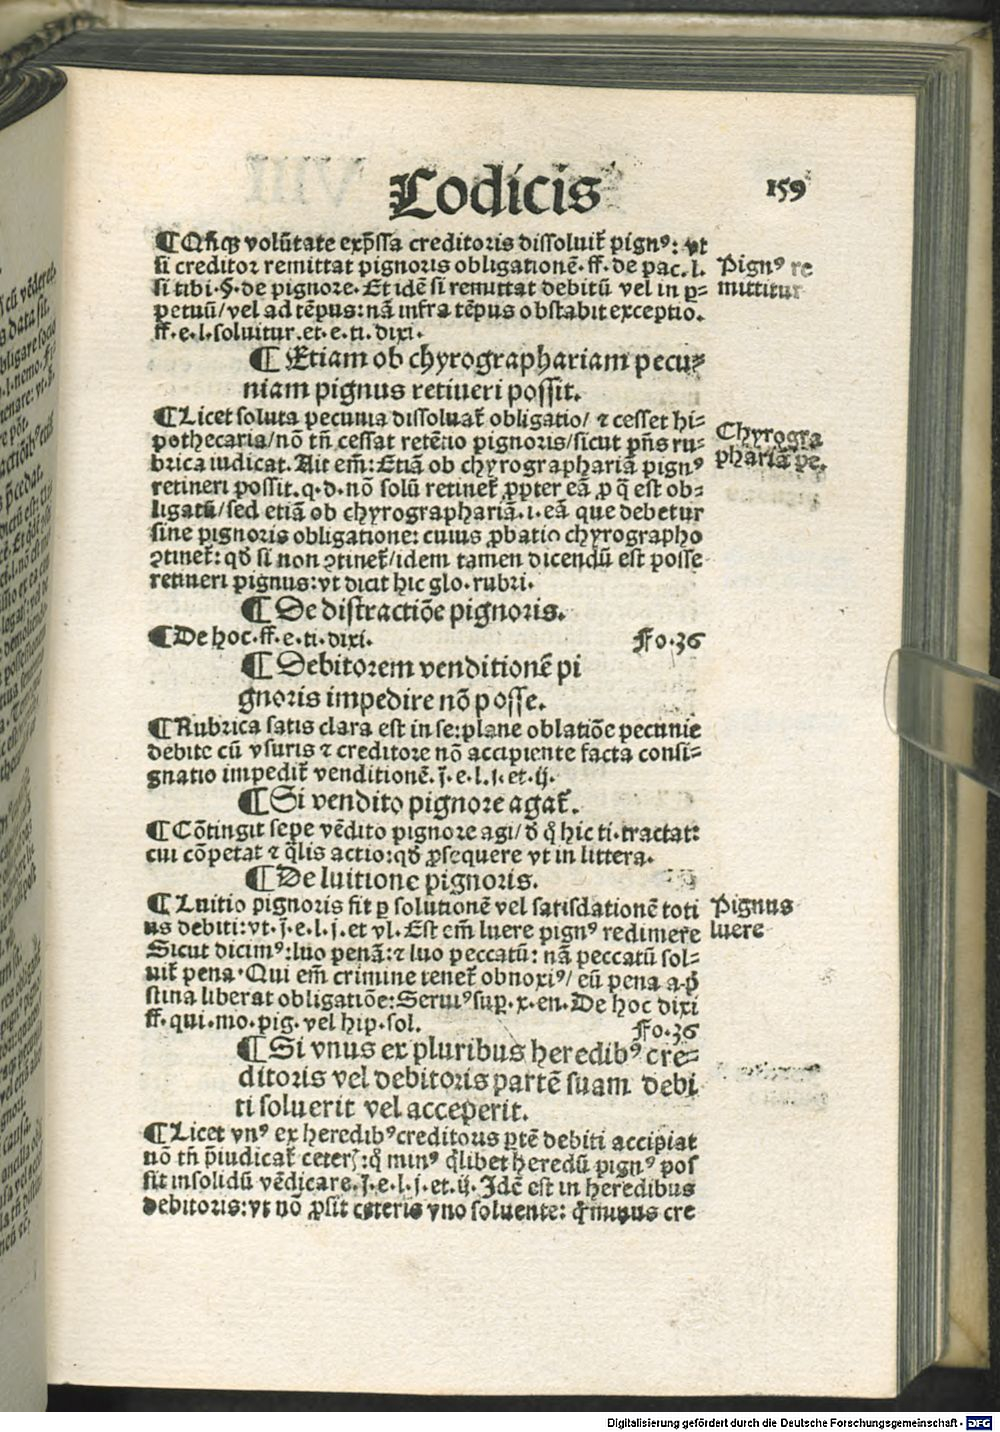 Codicis
159
¶ Qñcꝙ volũtate exp̃ssa creditoris dissoluit᷑ pignꝰ: vt
si creditor remittat pignoris obligationẽ. ff. de pac. l.
si tibi. §. de pignore. Et idẽ si remittat debitũ vel in ꝑ-
petuũ/ vel ad tẽpus: nã infra tẽpus obstabit exceptio.
ff. e. l. soluitur. et. e. ti. dixi.
Pignꝰ re
mittitur
¶ Etiam ob chyrographariam pecu-
niam pignus retineri possit.
¶ Licet soluta pecunia dissoluat᷑ obligatio/ ⁊ cesset hi-
pothecaria/ nõ tñ cessat retẽtio pignoris/ sicut pñs ru-
brica iudicat. Ait em̃: Etiã ob chyrographariã pignꝰ
retineri possit. q. d. nõ solũ retinet᷑ ꝓpter eã ꝓ q̃ est ob-
ligatũ/ sed etiã ob chyrographariã. i. eã que debetur
sine pignoris obligatione: cuius ꝓbatio chyrographo
ꝯtinet᷑: qď si non ꝯtinet᷑/ idem tamen dicendũ est posse
retineri pignus: vt dicit hic glo. rubri.
Chyrogra
phariã pe.
¶ De distractiõe pignoris.
¶ De hoc. ff. e. ti. dixi. Fo. 36
¶ Debitorem venditionẽ pi
gnoris impedire nõ posse.
¶ Rubrica satis clara est in se: plane oblatiõe pecunie
debite cũ vsuris ⁊ creditore nõ accipiente facta consi-
gnatio impedit᷑ venditionẽ. j̃. e. l. j. et. ij.
¶ Si vendito pignore agat᷑.
¶ Cõtingit sepe vẽdito pignore agi/ ď q̊ hic ti. tractat:
cui cõpetat ⁊ q̃lis actio: qď ꝓsequere vt in littera.
¶ De luitione pignoris.
¶ Luitio pignoris fit ꝑ solutionẽ vel satisdationẽ toti
us debiti: vt. j̃. e. l. j. et vl. Est em̃ luere pignꝰ redimere
Sicut dicimꝰ: luo penã: ⁊ luo peccatũ: nã peccatũ sol-
uit᷑ pena. Qui em̃ crimine tenet᷑ obnoxiꝰ/ eũ pena a p̃
stina liberat obligatiõe: Seruiꝰ suꝑ. x. en. De hoc dixi
ff. qui. mo. pig. vel hip. sol. Fo. 36
Pignus
luere
¶ Si vnus ex pluribus heredibꝰ cre-
ditoris vel debitoris partẽ suam debi
ti soluerit vel acceperit.
¶ Licet vnꝰ ex heredibꝰ creditoris ꝑtẽ debiti accipiat
nõ tñ p̃iudicat᷑ ceterꝭ: q̊ minꝰ q̃libet heredũ pignꝰ pos
sit insolidũ vẽdicare. j̃. e. l. j. et. ij. Idẽ est in heredibus
debitoris: vt nõ ꝓsit ceteris vno soluente: q̊minus cre
Digitalisierung gefördert durch die Deutsche Forschungsgemeinschaft - DFG